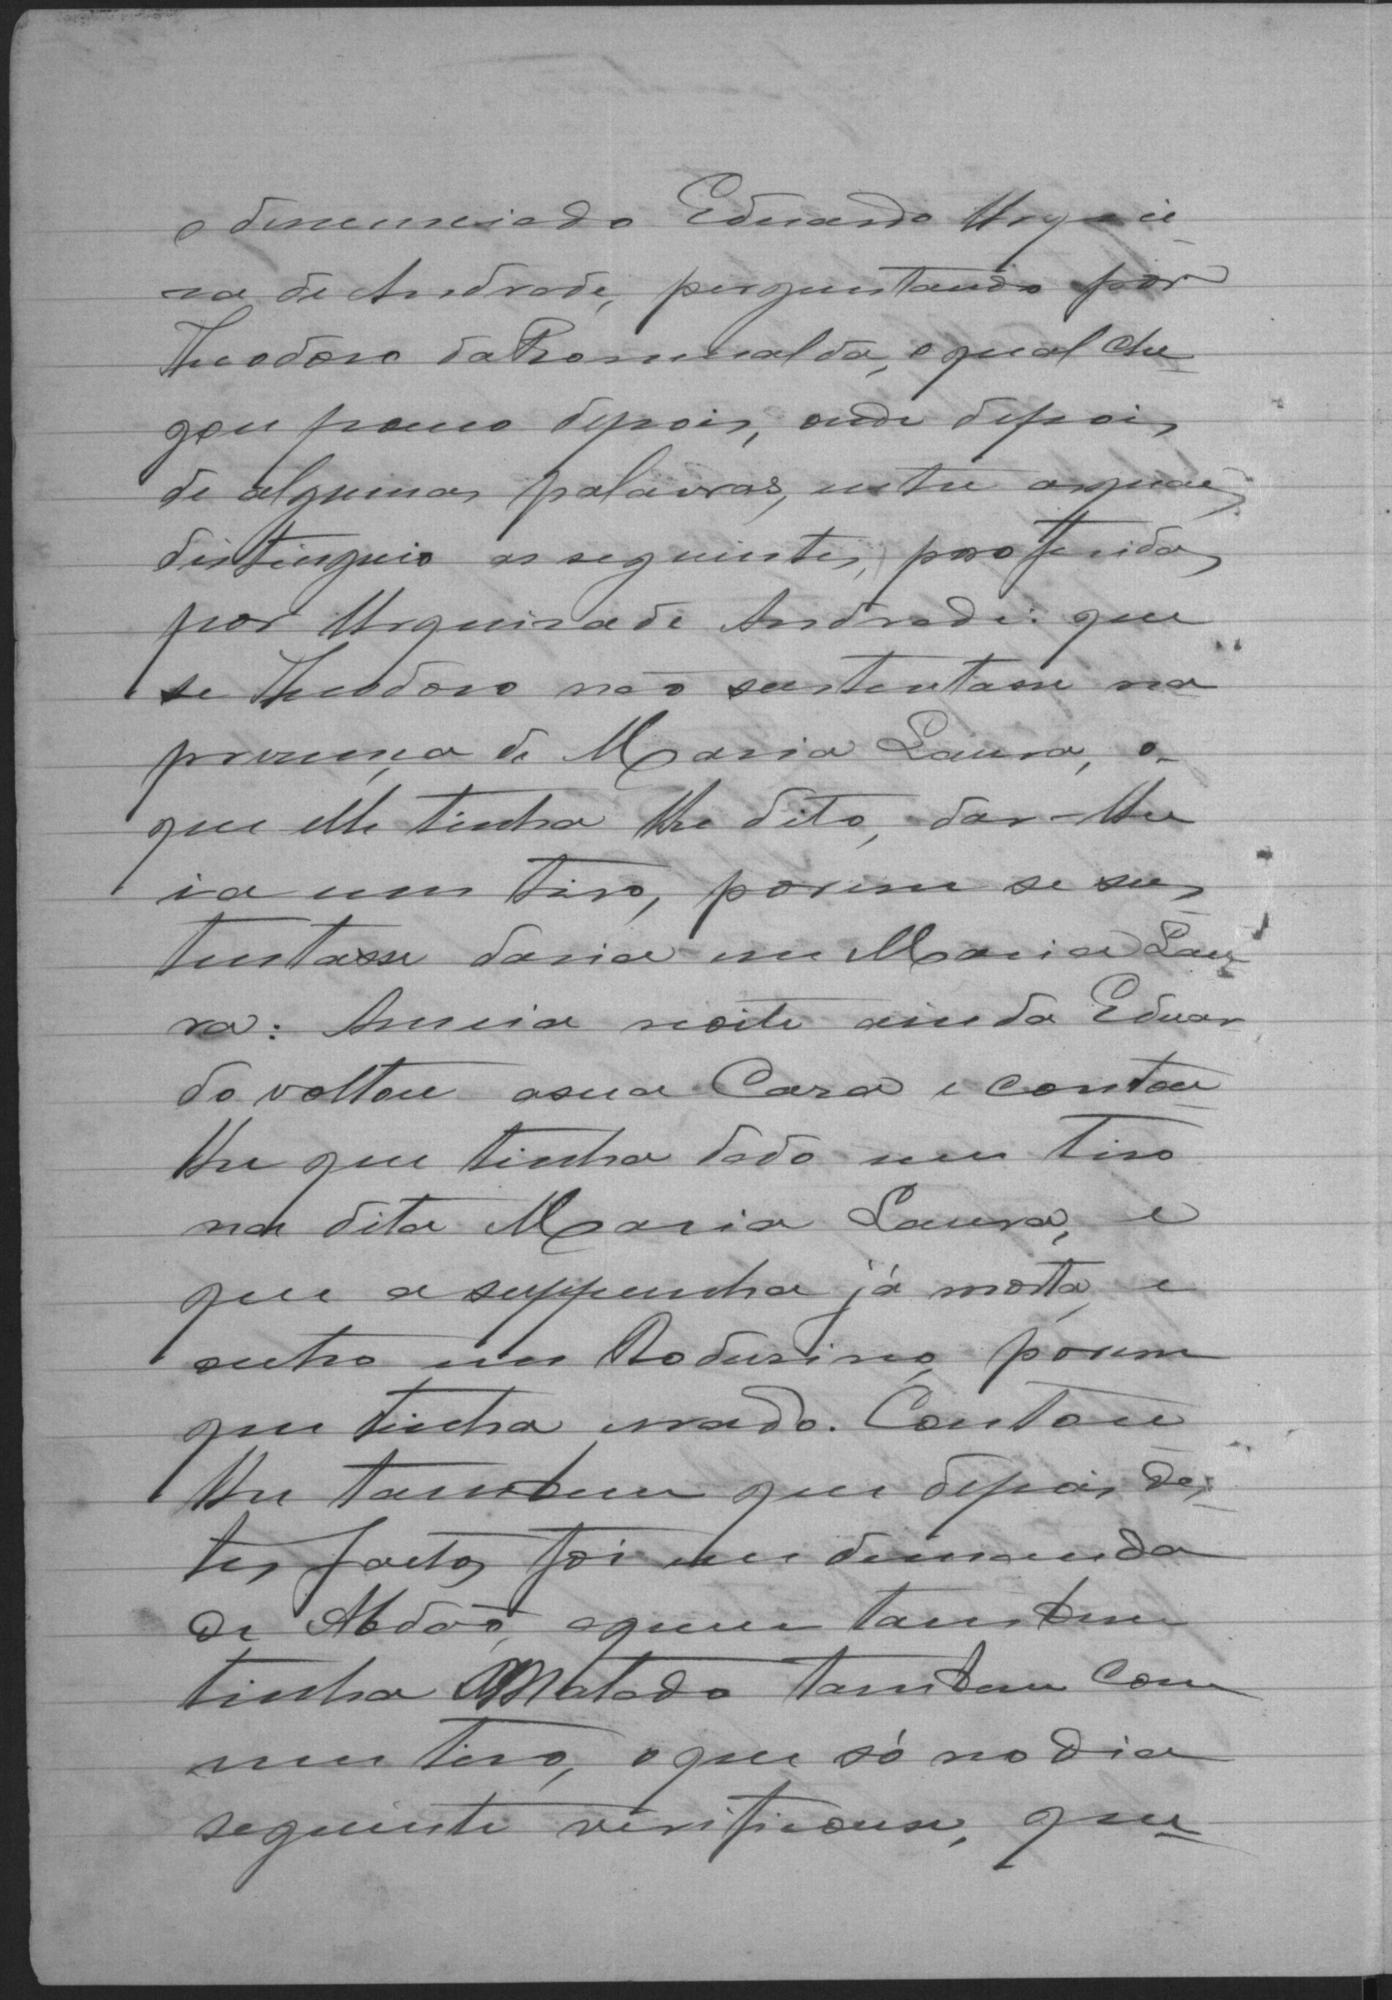 o denunciado Eduardo Urquie-
ra de Andrade, perguntando por
Theodoro da Romualda, o qual che-
gou pouco depois, onde depois
de algumas palavras, entre as quaes
distinguio as seguintes, proferidas
por Urquisa de Andrade: que
se Theodoro não sustentasse na
presença de Maria Laura, o-
que elle tinha lhe dito, dar-lhe
ia um tiro, porem se sus-
tentasse daria em Maria Lau-
ra: Ameia noite ainda Eduar-
do voltou asua Casa e contou
lhe que tinha dado um tiro
na dita Maria Laura, e
que a suppunha já morta, e
outro em, porem
que tinha errado. Contou
lhe tambem que depois des-
tes factos foi em demanda
de Abdão, aquem tambem
tinha Matado tambem com
um tiro, o que só no dia
seguinte verificouse, que